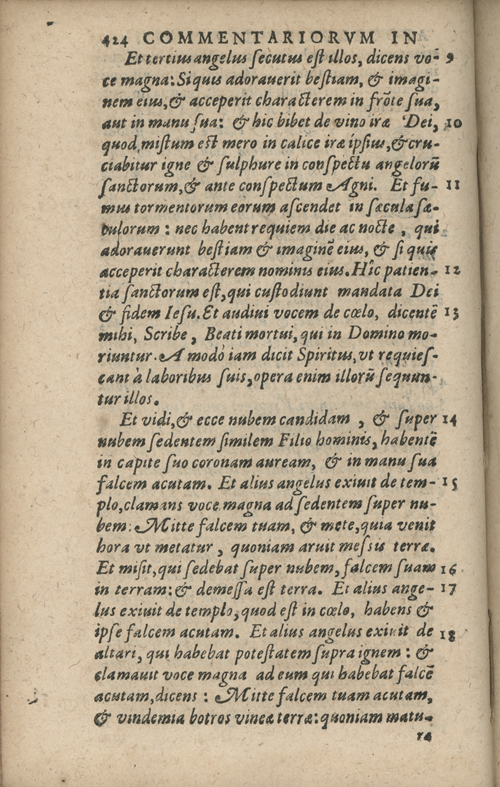 424 COMMENTARIORVM IN
Et tertius angelus ſecutus eſt illos, dicens vo- 9
ce magna: Si quis adorauerit beſtiam, & imagi-
nem eius, & acceperit characterem in frõte ſua,
aut in manu ſua: & hic bibet de vino iræ Dei, 10
quod miſtum eſt mero in calice iræ ipſius, & cru-
ciabitur igne & ſulphure in conſpectu angelorũ
ſanctorum, & ante conſpectum Agni. Et fu- 11
mus tormentorum eorum aſcendet in ſæcula ſæ-
culorum: nec habent requiem die ac nocte, qui
adorauerunt beſtiam & imaginẽ eius, & ſi quis
acceperit characterem nominis eius. Hîc patien- 12
tia ſanctorum eſt, qui cuſtodiunt mandata Dei
& fidem Ieſu. Et audiui vocem de cœlo, dicentẽ 13
mihi, Scribe, Beati mortui, qui in Domino mo-
riuntur. A modò iam dicit Spiritus, vt requieſ-
cant à laboribus ſuis, opera enim illorũ ſequun-
tur illos.
Et vidi, & ecce nubem candidam, & ſuper 14
nubem ſedentem ſimilem Filio hominis, habentẽ
in capite ſuo coronam auream, & in manu ſua
falcem acutam. Et alius angelus exiuit de tem- 15
plo, clamans voce magna ad ſedentem ſuper nu-
bem: Mitte falcem tuam, & mete, quia venit
hora vt metatur, quoniam aruit meſsis terræ.
Et miſit, qui ſedebat ſuper nubem, falcem ſuam 16
in terram: & demeſſa eſt terra. Et alius ange- 17
lus exiuit de templo, quod eſt in cœlo, habens &
ipſe falcem acutam. Et alius angelus exiuit de 18
altari, qui habebat poteſtatem ſupra ignem: &
clamauit voce magna ad eum qui habebat falcẽ
acutam, dicens: Mitte falcem tuam acutam,
& vindemia botros vineæ terræ: quoniam matu-
ræ